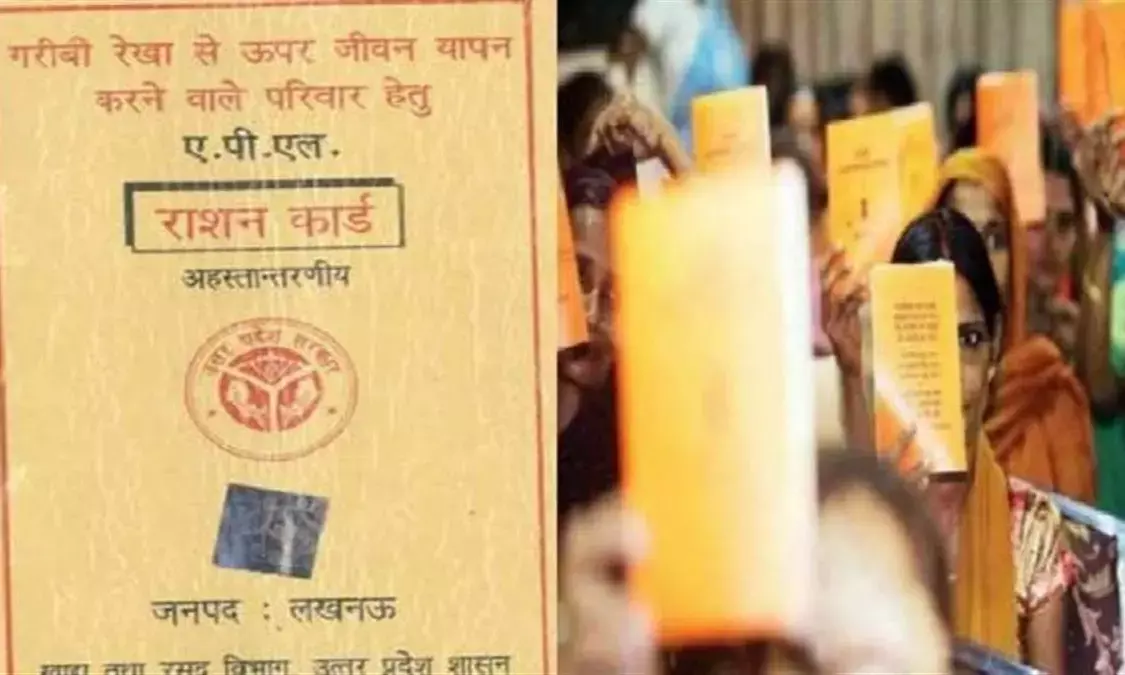 गरीबी रेखा से ऊपर जीवन यापन
करने वाले परिवार हेतु
ए.पी.एल.
राशन कार्ड
अहस्तान्तरणीय
उत्तर प्रदेश सरकार
जनपद : लखनऊ
खाद्य तथा रसद विभाग, उत्तर प्रदेश शासन